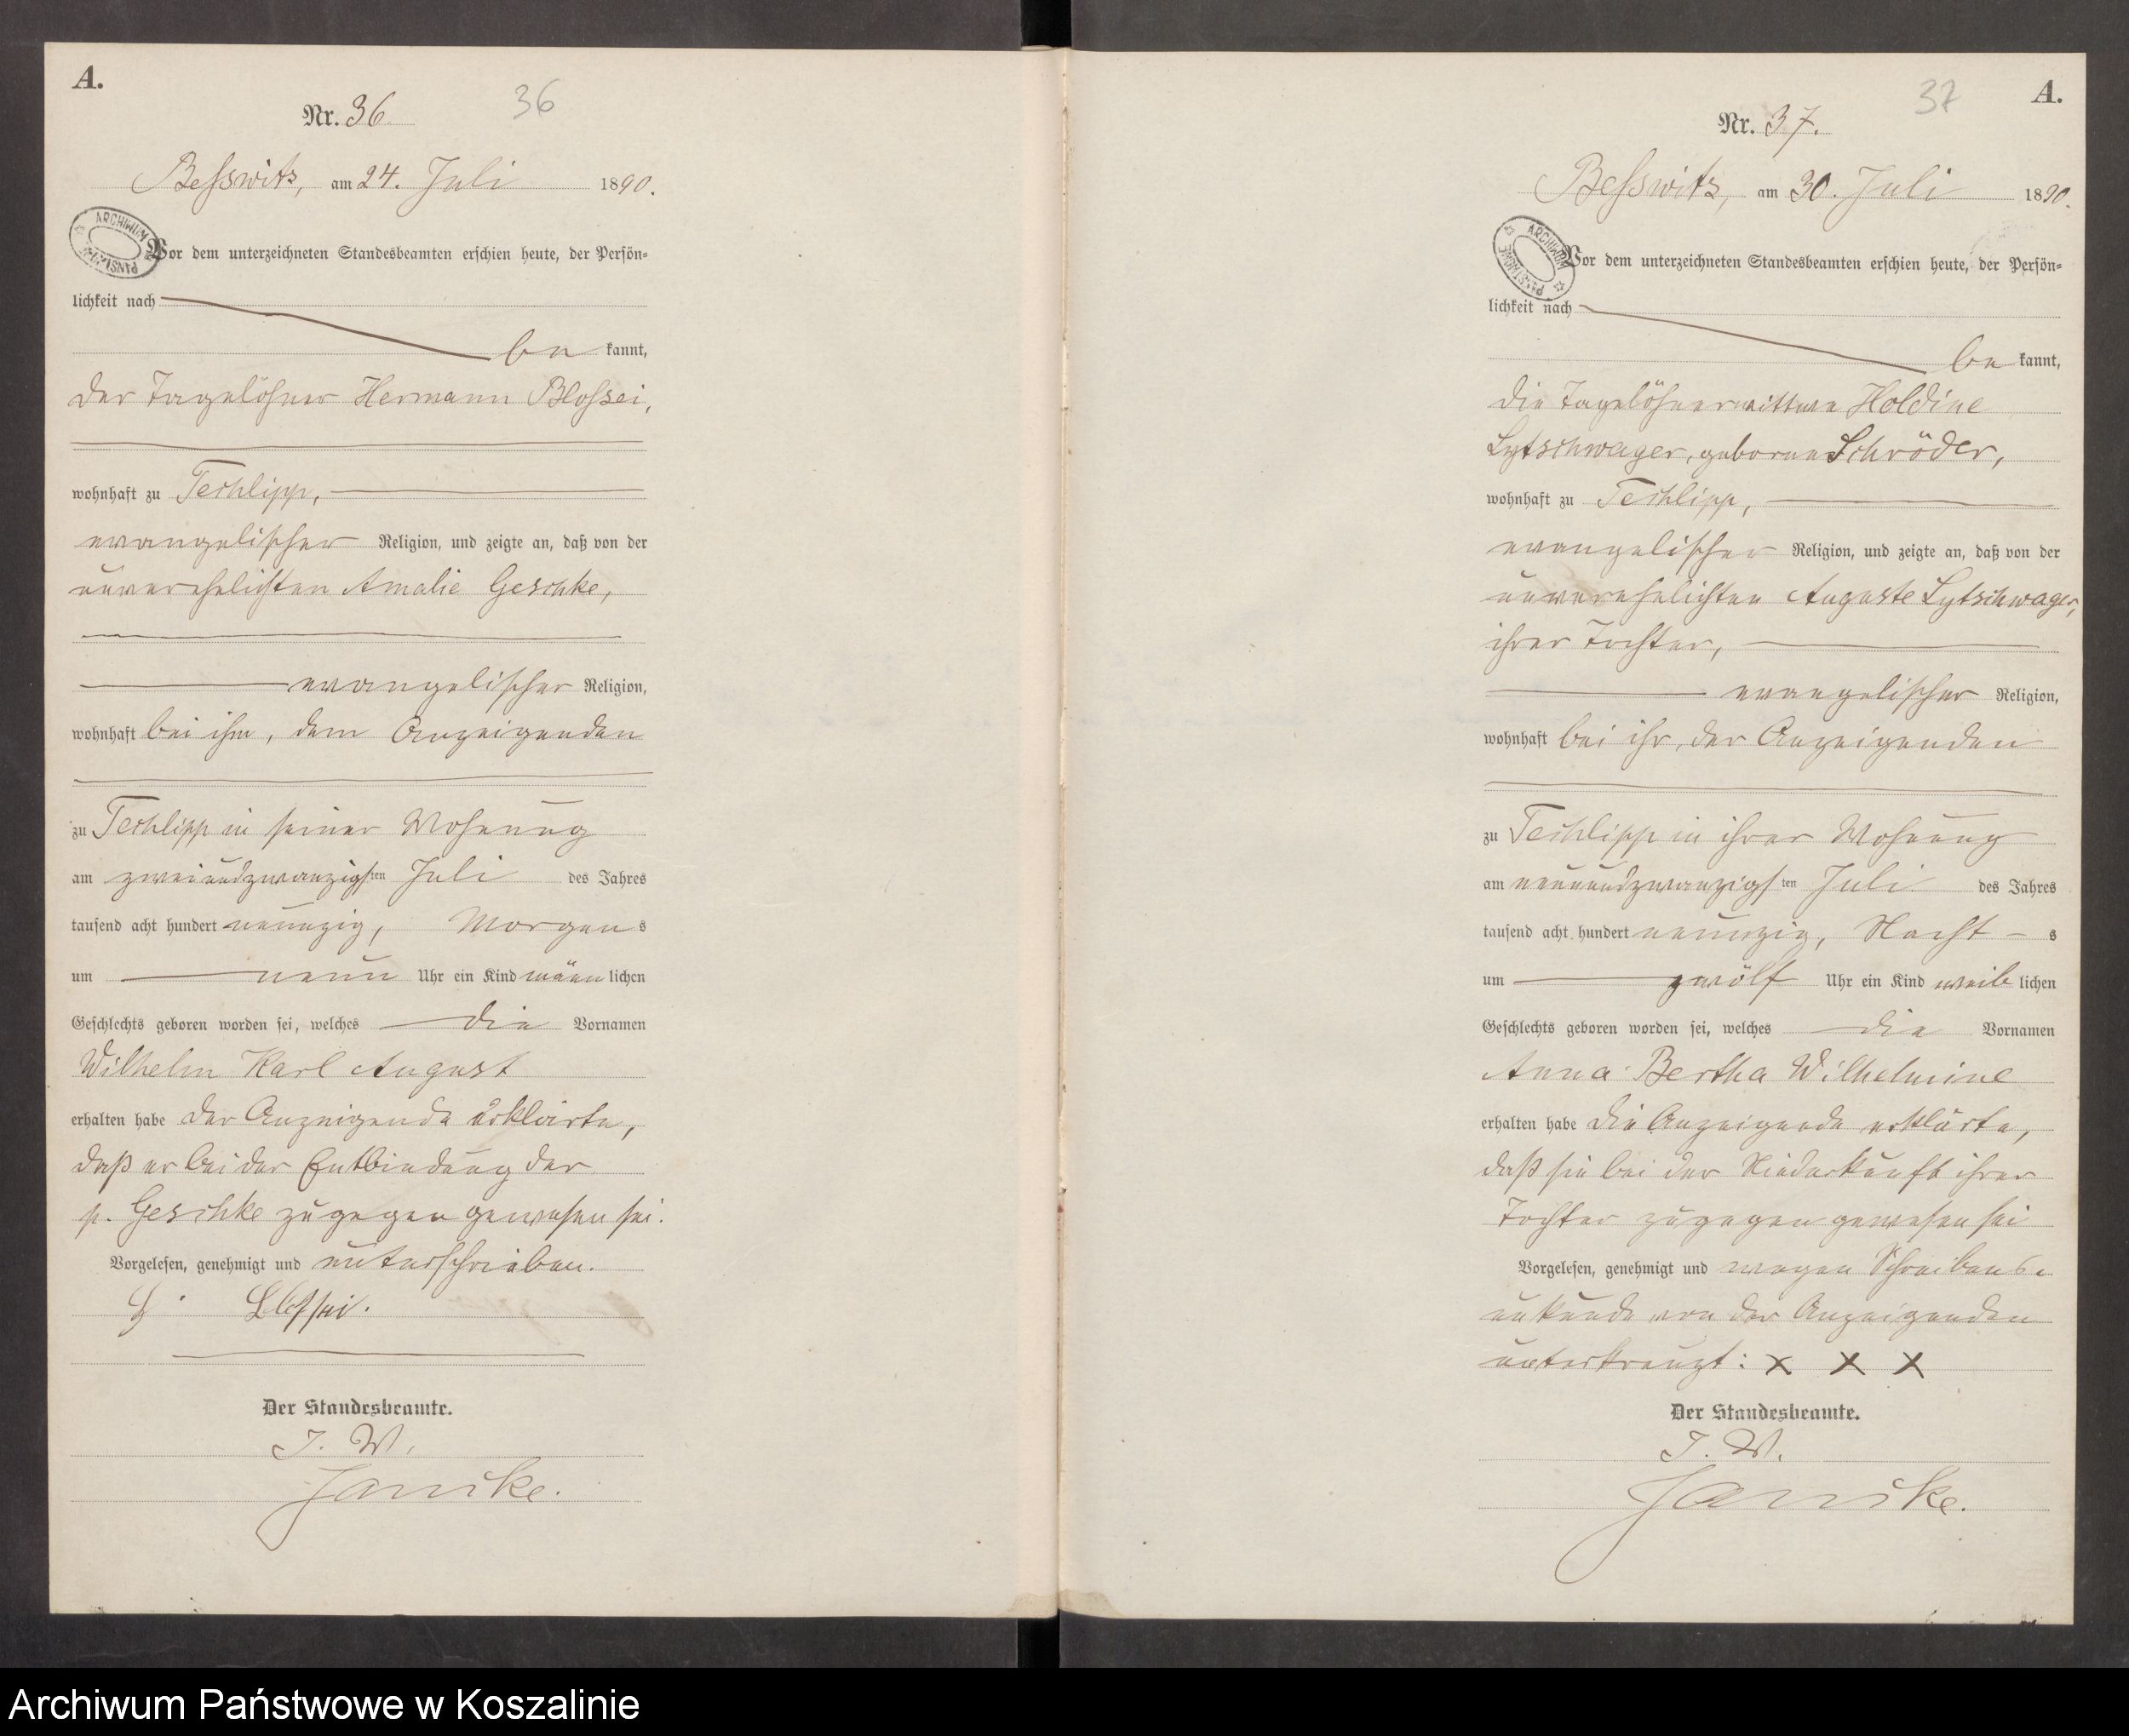 A.
Nr. 36. 36
Besswitz, am 24. Juli 1890.
ARCHIWUM PAŃSTWOWE
Vor dem unterzeichneten Standesbeamten erschien heute, der Persön-
lichkeit nach
be kannt,
der Tagelöhner Hermann Blossei,
wohnhaft zu Techlipp,
evangelischer Religion, und zeigte an, daß von der
unverehelichten Amalie Geschke,
evangelischer Religion,
wohnhaft bei ihm, dem Anzeigenden
zu Techlipp in seiner Wohnung
am zweiundzwanzigsten Juli des Jahres
tausend acht hundert neunzig, Morgens
um neun Uhr ein Kind männlichen
Geschlechts geboren worden sei, welches die Vornamen
Wilhelm Karl August
erhalten habe der Anzeigende erklärte,
daß er bei der Entbindung der
p. Geschke zugegen gewesen sei.
Vorgelesen, genehmigt und unterschrieben.
H. Blossei.
Der Standesbeamte.
J. W.
Janicke.
A.
Nr. 37. 37
Besswitz, am 30. Juli 1890.
ARCHIWUM PAŃSTWOWE
Vor dem unterzeichneten Standesbeamten erschien heute, der Persön-
lichkeit nach
be kannt,
die Tagelöhnerwittwe Holdine
Lytschwager, geborne Schröder,
wohnhaft zu Techlipp,
evangelischer Religion, und zeigte an, daß von der
unverehelichten Auguste Lytschwager,
ihrer Tochter,
evangelischer Religion,
wohnhaft bei ihr, der Anzeigenden
zu Techlipp in ihrer Wohnung
am neunundzwanzigsten Juli des Jahres
tausend acht hundert neunzig, Nacht - s
um zwölf Uhr ein Kind weiblichen
Geschlechts geboren worden sei, welches die Vornamen
Anna Bertha Wilhelmine
erhalten habe die Anzeigende erklärte,
daß sie bei der Niederkunft ihrer
Tochter zugegen gewesen sei
Vorgelesen, genehmigt und wegen Schreibens-
unkunde von der Anzeigenden
unterkreuzt: x x x
Der Standesbeamte.
J. W.
Janicke.
Archiwum Państwowe w Koszalinie